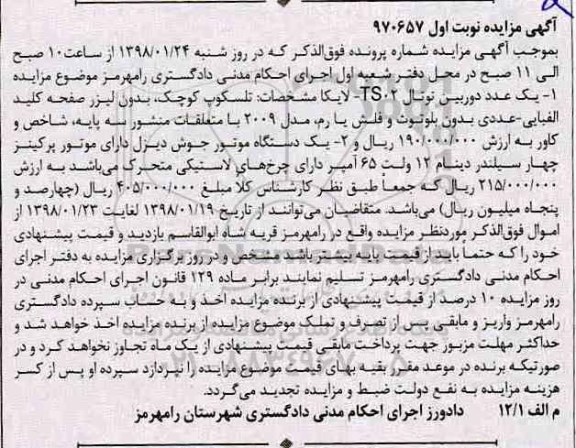 آگهی مزایده نوبت اول ۹۷۰۶۵۷
بموجب آگهی مزایده شماره پرونده فوق‌الذکر که در روز شنبه ۱۳۹۸/۰۱/۲۴ از ساعت ۱۰ صبح
الی ۱۱ صبح در محل دفتر شعبه اول اجرای احکام مدنی دادگستری رامهرمز موضوع مزایده
۱- یک عدد دوربین توتال TS۰۲- لایکا مشخصات: تلسکوپ کوچک، بدون لیزر صفحه کلید
الفبایی-عددی بدون بلوتوث و فلش یا رم، مدل ۲۰۰۹ با متعلقات منشور سه پایه، شاخص و
کاور به ارزش ۱۹۰/۰۰۰/۰۰۰ ریال و ۲- یک دستگاه موتور جوش دیزل دارای موتور پرکینز
چهار سیلندر دینام ۱۲ ولت ۶۵ آمپر دارای چرخ‌های لاستیکی متحرک می‌باشد به ارزش
۲۱۵/۰۰۰/۰۰۰ ریال که جمعاً طبق نظر کارشناس کلاً مبلغ ۴۰۵/۰۰۰/۰۰۰ ریال (چهارصد و
پنجاه میلیون ریال) می‌باشد. متقاضیان می‌توانند از تاریخ ۱۳۹۸/۰۱/۱۹ لغایت ۱۳۹۸/۰۱/۲۳ از
اموال فوق‌الذکر موردنظر مزایده واقع در رامهرمز قریه شاه ابوالقاسم بازدید و قیمت پیشنهادی
خود را که حتما باید از قیمت پایه بیشتر باشد مشخص و در روز برگزاری مزایده به دفتر اجرای
احکام مدنی دادگستری رامهرمز تسلیم نمایند برابر ماده ۱۲۹ قانون اجرای احکام مدنی در
روز مزایده ۱۰ درصد از قیمت پیشنهادی از برنده مزایده اخذ و به حساب سپرده دادگستری
رامهرمز واریز و مابقی پس از تصرف و تملک موضوع مزایده از برنده مزایده اخذ خواهد شد و
حداکثر مهلت مزبور جهت پرداخت مابقی قیمت پیشنهادی از یک ماه تجاوز نخواهد کرد و در
صورتیکه برنده در موعد مقرر بقیه بهای قیمت موضوع مزایده را نپردازد سپرده او پس از کسر
هزینه مزایده به نفع دولت ضبط و مزایده تجدید می‌گردد.
م الف ۱۲/۱ دادورز اجرای احکام مدنی دادگستری شهرستان رامهرمز